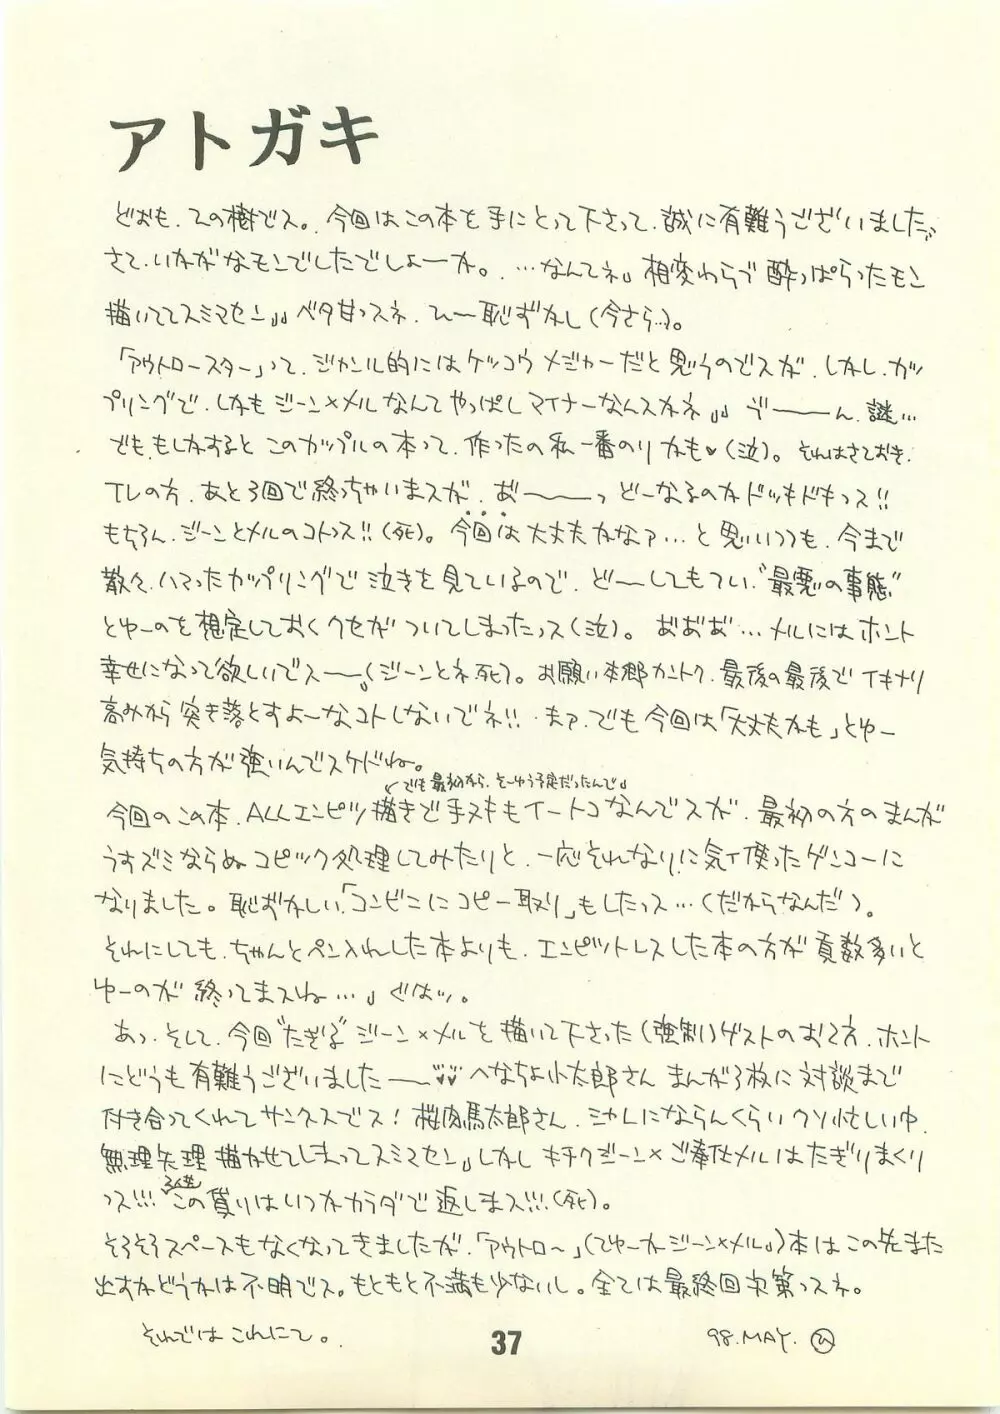 アトガキ
どおも、ひの樹でス。今回はこの本を手にとって下さって、誠に有難うございました。
さて、いかがなモンでしたでしょーか。…なんてネ。相変わらで酔っぱらったモン
描いててスミマセン。ベタ甘っスネ、ひ〜恥ずかし(今さら…)。
「アウトロースター」って、ジャンル的にはケッコウメジャーだと思うのでスが、しかし、カッ
プリングで、しかもジーン×メルなんてやっぱしマイナーなんスかネ。ゔーーん、謎…
でも、もしかすると このカップルの本って、作ったの私一番のりかも♥(泣)。それはさておき、
TVの方、あと3回で終っちゃいまスが、お゙ーーっ どーなるのかドッキドキっス!!
もちろん、ジーンとメルのコトっス!!(死)。今回は大丈夫かなァ…と思いつつも、今まで
散々、ハマったカップリングで泣きを見ているので、どーしてもてい、"最悪の事態"
とゆーのを想定しておくクセがついてしまったっス(泣)。お゙お゙お゙…メルにはホント
幸せになって欲しいでスー(ジーンとネ、死)。お願い本郷カントク、最後の最後でイキナリ
高みから突き落とすよーなコトしないでネ!!まァ、でも今回は「大丈夫かも」とゆー
気持ちの方が強いんでスケドね。
でも最初から、そーゆう予定だったんで
今回のこの本、ALLエンピツ描きで手ヌキもイートコなんでスが、最初の方のまんが
うすズミならぬコピック処理してみたりと、一応それなりに気イ使ったゲンコーに
なりました。恥ずかしい、「コンビニにコピー取り」もしたっス…(だからなんだ)。
それにしても、ちゃんとペン入れした本よりも、エンピツトレスした本の方が頁数多いと
ゆーのが終ってまスね…。ぐはッ。
あっ、そして、今回"たぎる"ジーン×メルを描いて下さった(強制)ゲストのお2方、ホント
にどうも有難うございましたー♥♥へなちょ小太郎さん まんが3枚に対談まで
付き合ってくれてサンクスでス！桜肉馬太郎さん、ミカレにならんくらいクソ忙しい中、
無理矢理描かせてしまってスミマセン。しかしキチクジーン×ご奉仕メルはたぎりまくり
っス!!!この借りはいつかカラダで返しまス!!!(死)。
そろそろスペースもなくなってきましたが、「アウトロ〜」(てゆーかジーン×メル)本はこの先また
出すかどうかは不明でス。もともと不満も少ないし。全ては最終回次第っスネ。
それでは これにて。
98.MAY. ひ
37